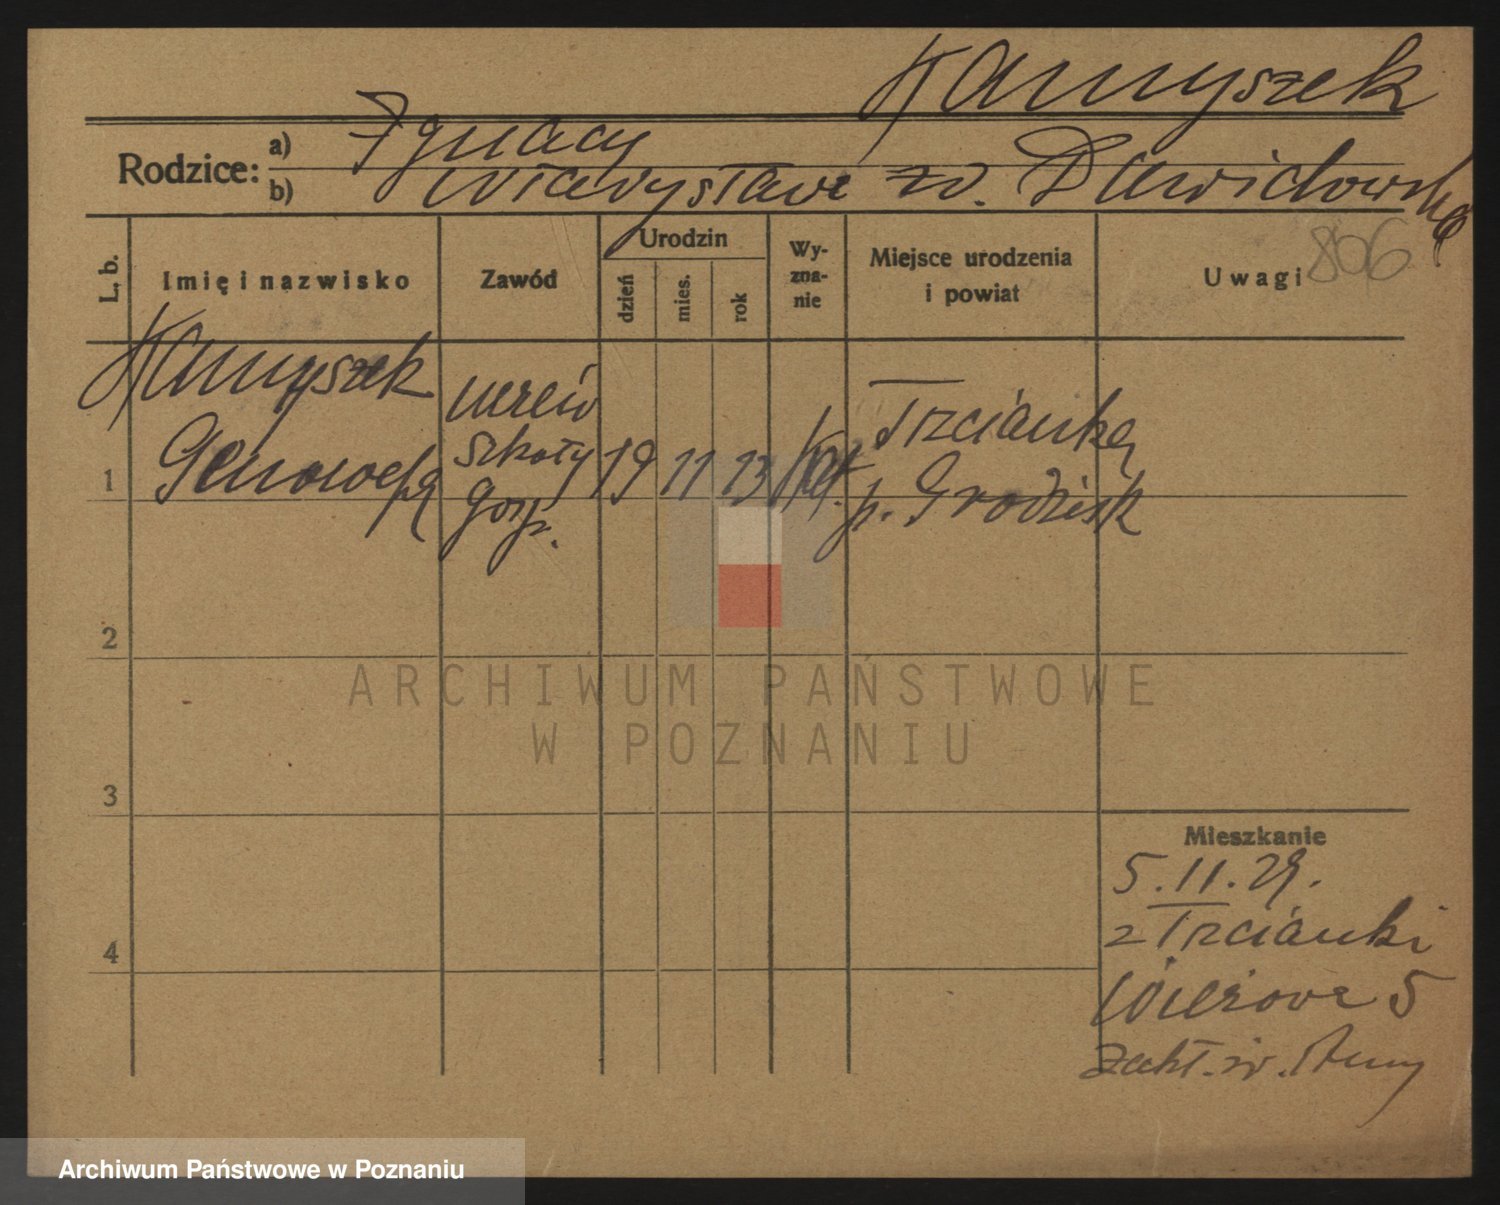 Kamyszek
Rodzice: a) Ignacy
b) Władysława zd. Dawidowska
L. b. Imię i nazwisko Zawód Urodzin dzień mies. rok Wy-zna-nie Miejsce urodzenia i powiat Uwagi 806
Kamyszek
1 Genowefa
szkoły
gosp.
19 11 13 kat.
Trzcianka
p. Grodzisk
2
3
4
Mieszkanie
5.11.29.
z Trzcianki
5
Zakł. św. Anny
ARCHIWUM PAŃSTWOWE
W POZNANIU
Archiwum Państwowe w Poznaniu